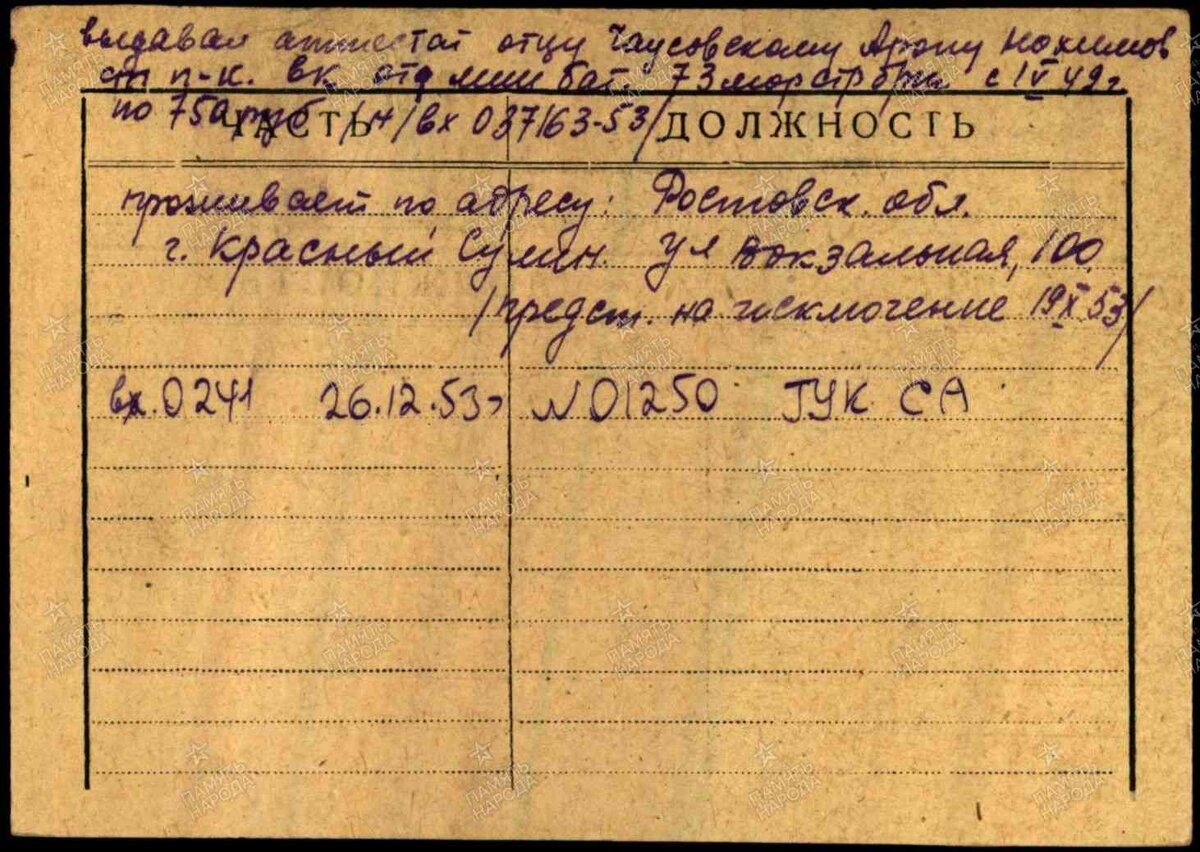 выдавал аттестат отцу Чаусовскому Арону Нохимов
ст п-к. ВК отд мин бат. 73 мор стр бриг с 1 V 42 г
по 750 руб /н/вх 037163-53/
ЧАСТЬ ДОЛЖНОСТЬ
проживает по адресу: Ростовск. обл.
г. Красный Сулин. ул Вокзальная, 100
/предст. на исключение 19 XI 53/
вх. 0241 26.12.53г N 01250 ГУК СА
ПАМЯТЬ НАРОДА